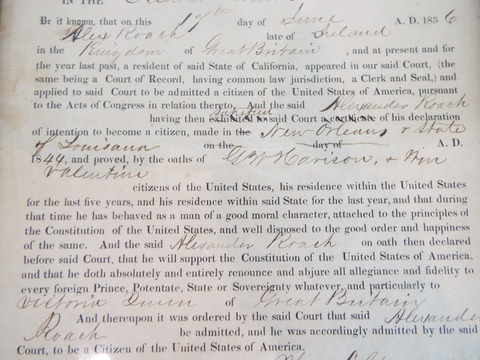 IN THE
Be it known, that on this 19th day of June A. D. 1856
Alex Roach late of Ireland
in the Kingdom of Great Britain, and at present and for
the year last past, a resident of said State of California, appeared in our said Court, (the
same being a Court of Record, having common law jurisdiction, a Clerk and Seal,) and
applied to said Court to be admitted a citizen of the United States of America, pursuant
to the Acts of Congress in relation thereto. And the said Alexander Roach
having then exhibited to said Court a certificate of his declaration
of intention to become a citizen, made in the New Orleans & State
of Louisiana on the day of A. D.
1844, and proved, by the oaths of G W Harison, & Wm
Valentine
citizens of the United States, his residence within the United States
for the last five years, and his residence within said State for the last year, and that during
that time he has behaved as a man of a good moral character, attached to the principles of
the Constitution of the United States, and well disposed to the good order and happiness
of the same. And the said Alexander Roach on oath then declared
before said Court, that he will support the Constitution of the United States of America,
and that he doth absolutely and entirely renounce and abjure all allegiance and fidelity to
every foreign Prince, Potentate, State or Sovereignty whatever, and particularly to
Victoria Queen of Great Britain
And thereupon it was ordered by the said Court that said Alexander
Roach be admitted, and he was accordingly admitted by the said
Court, to be a Citizen of the United States of America,